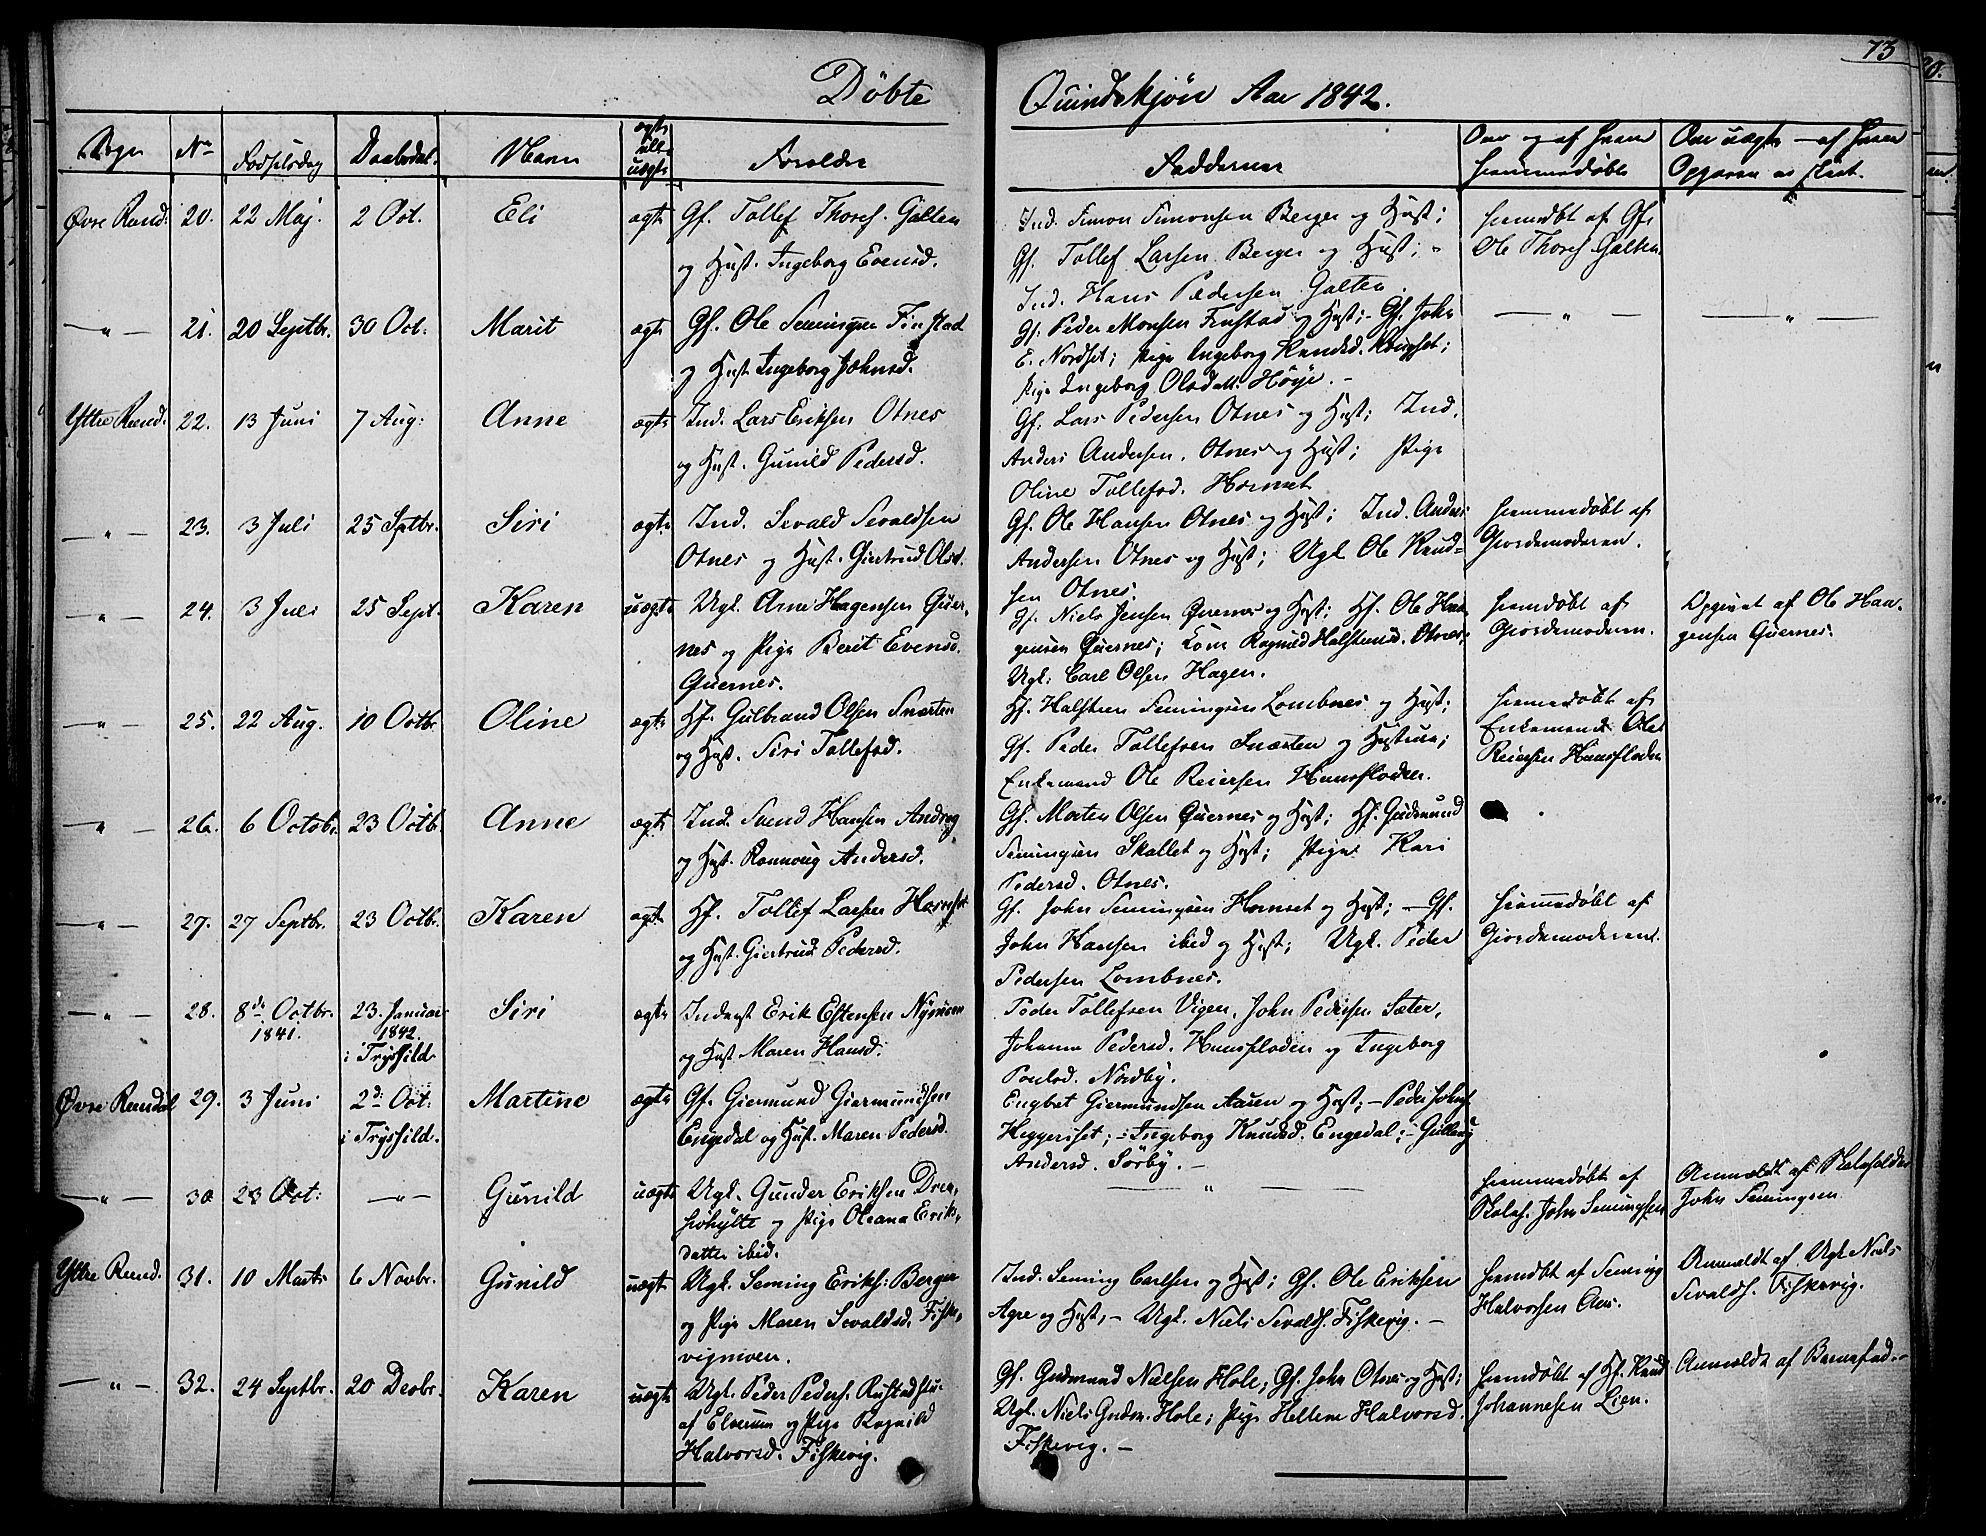 73
Döbte
Quindekjön Aar 1842.
Sogn No Fødselsdag Daabsdal. Navn ægte ell. uægte Forældre Fadderne Om og af hvem hiemmedøbt Om uægte - af hvem Opgaven er skeet.
Øvre Rend. 20. 22 Maj. 2 Oct. Eli ægte Gf. Tollef Thoresf. Galten
og Hust. Ingeborg Evensd.
Ind. Simon Simonsen Berger og Hust;
Gf. Tollef Larsen Berger og Hust; -
Ind. Hans Pedersen Galten.
hiemdöbt af Gf.
Ole Thoresf. Galten.
— " — 21. 20 Septbr. 30 Oct. Marit ægte Gf. Ole Semingsen Finstad
og Hust. Ingeborg Johnsd.
Gf. Peder Monsen Finstad og Hust; - Gf. John
E. Nordset; Pige Ingeborg Knudsd. Krogset;
Pige Ingeborg Olsdatt. Höye. -
— " — — " —
Yttre Rend. 22. 13 Juni 7 Aug: Anne ægte Ind. Lars Eriksen Otnes
og Hust. Gunild Pedersd.
Gf. Lars Pedersen Otnes og Hust; Ind.
Anders Andersen Otnes og Hust; Pige
Oline Tollefsd. Hornset
— " — 23. 3 Juli 25 Sptbr. Siri ægte Ind. Sevald Sevaldsen
Otnes og Hust. Giertrud Olsd.
Gf. Ole Hansen Otnes og Hust; Ind. Anders
Andersen Otnes og Hust; Ugk. Ole Knud=
sen Otnes.
hiemmedöbt af
Giordemoderen.
— " — 24. 3 Juli 25 Sept. Karen uægte Ugk. Arne Hagensen Quer,
nes og Pige Berit Evensd.
Quernes.
Gf. Niels Jensen Quernes og Hust; Hf. Ole Haa
gensen Quernes; Kone Ragnild Halstensd. Otnes;
Ugk: Carl Olsen Hagen.
hiemdöbt af
Giordemoderen.
Opgivet af Ole Haa,
gensen Quernes.
— " — 25. 22 Aug. 10 Octbr. Oline ægte Hf. Gulbrand Olsen Snerten
og Hust. Siri Tollefsd.
Hf. Halsteen Semingsen Lombnes og Hust;
Gf. Peder Tollefsen Snerten og Hustrue;
Enkemand Ole Reiersen Hunsfloden.
hiemmedöbt af
Enkemand Ole
Reiersen Hunsfloden
— " — 26. 6 Octobr. 23 Octb. Anne ægte Ind. Svend Hansen Andrag
og Hust. Rannoug Andersd.
Gf. Morten Olsen Quernes og Hust; Hf. Gudmund
Semingsen Skallet og Hust; Pige Kari
Pedersd. Otnes.
— " — 27. 27 Septbr. 23 Octbr. Karen ægte Hf. Tollef Larsen Hornset
og Hust. Giertrud Pedersd.
Gf. John Semingsen Hornset og Hust; - Gf.
John Hansen ibid og Hust; Ugk. Peder
Pedersen Lombnes.
hiemmedöbt af
Giordemoderen.
— " — 28. 8de Octbr. 1841. 23. Januar 1842. i Trysild Siri ægte Inderst Erik Estensen Nymoen
og Hust Maren Hansd.
Peder Tollefsen Vigen, John Pedersen Sæter,
Johanne Pedersd. Hunsfloden og Ingeborg
Poulsd. Nordby.
Øvre Rendal 29. 3 Juni 2d. Oct: i Trysild. Martine ægte Gf. Giermund Giermundsen
Engedal og Hust. Maren Pedersd.
Engbret Giermundsen Aasen og Hust; - Peder Johns.
Heggeriset; - Ingeborg Knudsd. Engedal; - Gullaug
Andersd. Sörby. -
— " — 30 23 Oct: — " — Gunild uægte Ugk. Gunder Eriksen Drev,
siohytte og Pige Oleana Eriks,
datter ibid.
— " —
hiemmedöbt af
Skoleh. John Semingsen
Anmeldt af Skoleholder
John Semingsen
Yttre Rend. 31. 10 Marts 6 Novbr. Gunild uægte Ugk. Seming Eriks: Berger
og Pige Maren Sevaldsd. Fiske,
vigmoen.
Ind. Seming Carlsen og Hust; Gf. Ole Eriksen
Agre og Hust; - Ugk. Niels Sevalds. Fiskevig. -
hiemdöbt af Seming
Halvorsen Aas.
Anmeldt af Ugk. Niels
Sevalds. Fiskevig.
— " — 32. 24 Septbr. 20 Decbr. Karen uægte Ugk. Peder Peders. Rustadstu.
af Elverum og Pige Ragnild
Halvorsd. Fiskevig.
Gf. Gudmund Nielsen Hole; Gf. John Otnes og Hust;
Ugk. Niels Gudm. Hole; Pige Hellene Halvorsd.
Fiskevig. -
hiemdöbt af Hf. Knud
Johannesen Lien.
Anmeldt af Barnefad. -